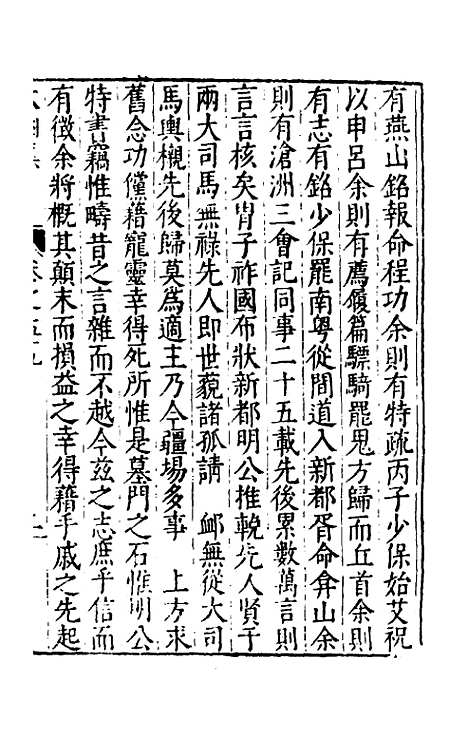 有燕山銘報命程功余則有特疏丙子少保始艾祝
以申呂余則有薦履篇驃騎罷鬼方歸而丘首余則
有志有銘少保罷南粤從間道入新都胥命弇山余
則有滄洲三會記同事二十五載先後累數萬言則
言言核矣胄子祚國布狀新都明公推轂先人賢于
兩大司馬無祿先人即世藐諸孤請 䘏無從大司
馬輿櫬先後歸莫為適主乃今疆場多事 上方求
舊念功僅藉寵靈幸得死所惟是墓門之石惟明公
特書竊惟疇昔之言雜而不越今茲之志庶乎信而
有徵余將概其顛末而損益之幸得藉手戚之先起
太函集 卷之五九